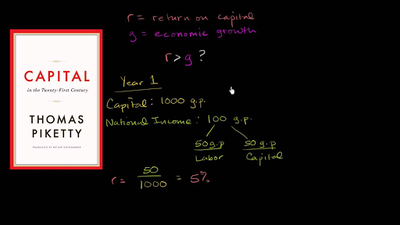 r = return on capital
g = economic growth
r > g ?
CAPITAL
in the Twenty-First Century
THOMAS
PIKETTY
TRANSLATED BY ARTHUR GOLDHAMMER
Year 1
Capital: 1000 g.p.
National Income: 100 g.p.
50 g.p
Labor
50 g.p
Capital
r = 50/1000 = 5%